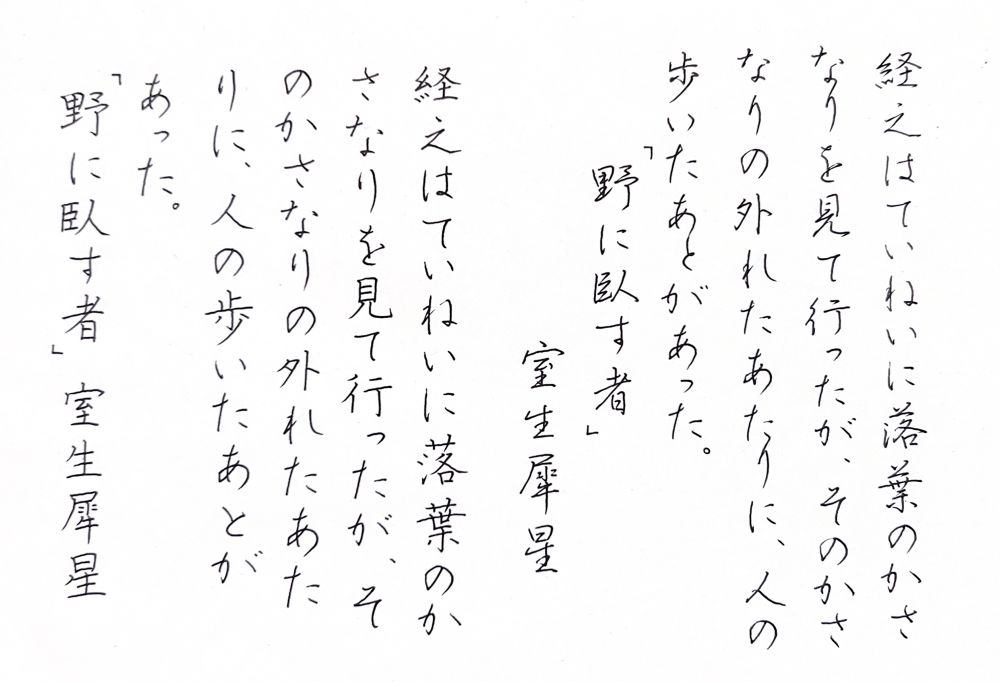 経えはていねいに落葉のかさ
なりを見て行ったが、そのかさ
なりの外れたあたりに、人の
歩いたあとがあった。
「野に臥す者」
室生犀星
経えはていねいに落葉のか
さなりを見て行ったが、そ
のかさなりの外れたあた
りに、人の歩いたあとが
あった。
「野に臥す者」室生犀星